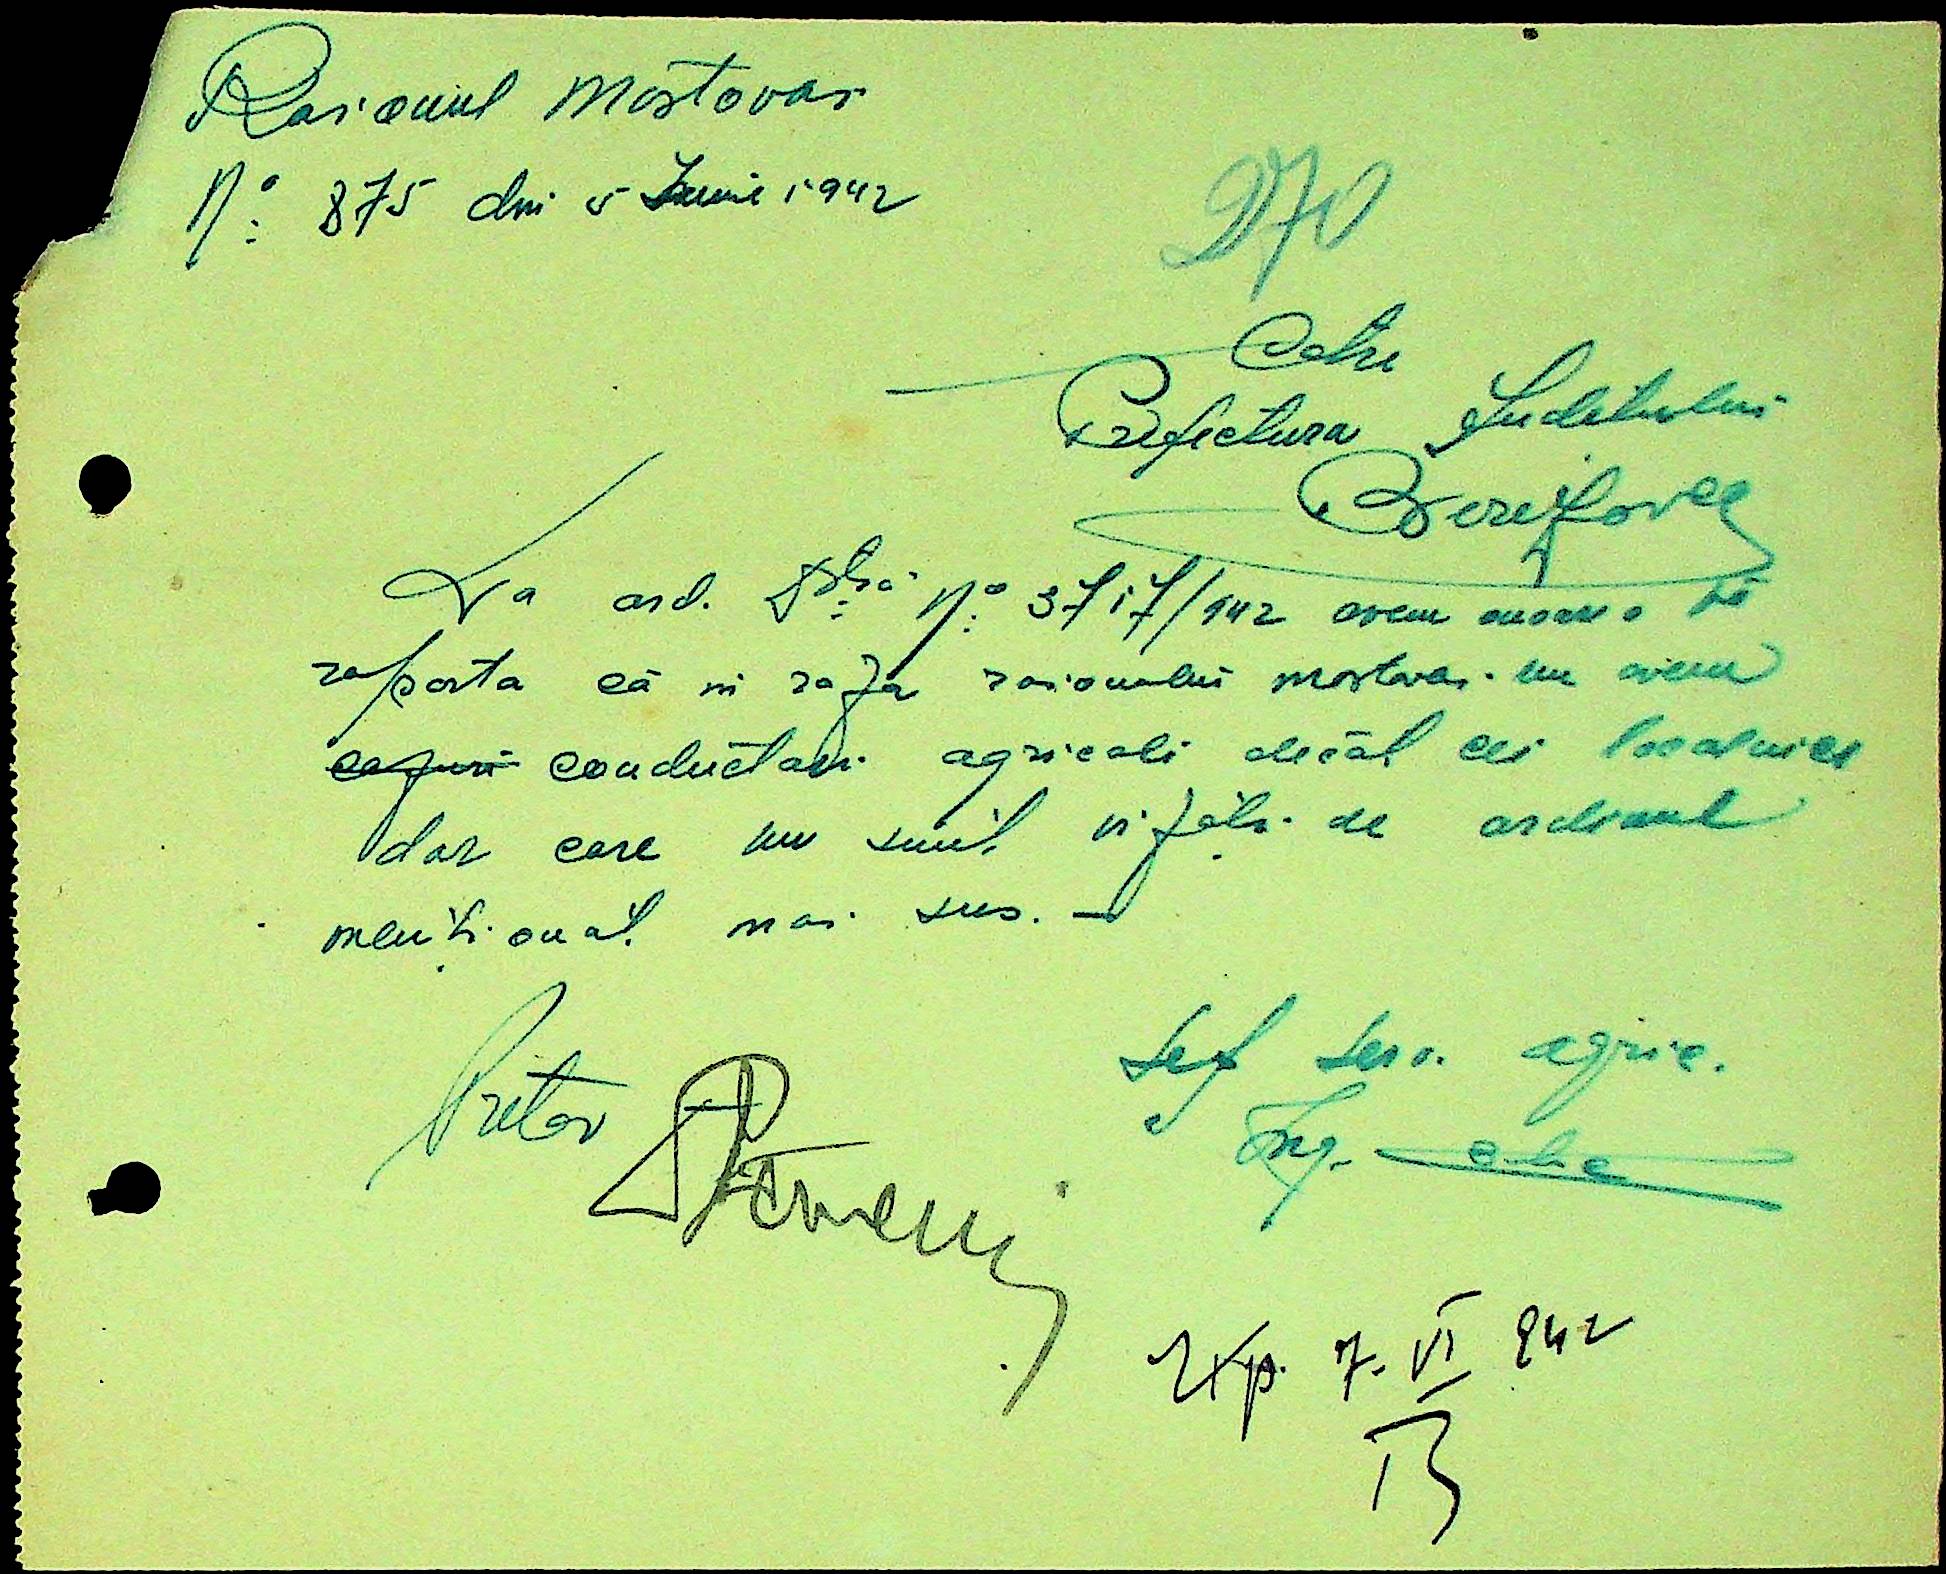 Raionul Mostovoi
No: 875 din 5 Iunie 1942
270
Catre
Prefectura Judetului
Berezovca
La ord. Dstră No: 3717/942 avem onoare a vă
raporta că in raza raionului mostovoi nu avem
conductori agricoli decât cei localnici
dar care nu sunt vizăti de ordonul
menționat mai sus. —
Pretor
Sef serv. agric.
Ing.
Exp. 7. VI 942